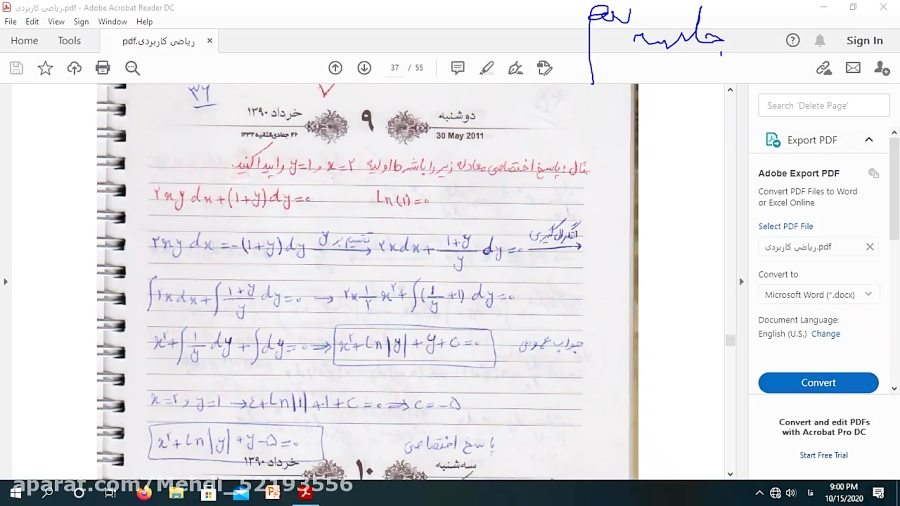 ریاضی کاربردی.pdf - Adobe Acrobat Reader DC
File Edit View Sign Window Help
جلسه
Home Tools ریاضی کاربردی.pdf × Sign In
37 / 55
۳۶
خرداد ۱۳۹۰ ۹ دوشنبه
۲۶ جمادی‌الثانیه ۱۴۳۲ 30 May 2011
مثال: پاسخ اختصاصی معادله زیر را با شرط اولیه x=۲ و y=1 را پیدا کنید.
۲xy dx+(1+y)dy=۰ Ln(1)=۰
۲xy dx=-(1+y)dy تقسیم بر y → ۲xdx+ (1+y)/y dy=۰ انتگرال گیری →
∫۲xdx+∫(1+y)/y dy=۰ → ۲x 1/۲ x^۲+∫(1/y+1)dy=۰
x^۲+∫1/y dy+∫dy=۰ ⇒ x^۲+Ln|y|+y+c=۰ جواب عمومی
x=۲, y=1 → ۴+Ln|1|+1+c=۰ ⇒ c=-۵
x^۲+Ln|y|+y-۵=۰ پاسخ اختصاصی
خرداد ۱۳۹۰ ۱۰ سه‌شنبه
Search 'Delete Page'
Export PDF
Adobe Export PDF
Convert PDF Files to Word or Excel Online
Select PDF File
ریاضی کاربردی.pdf ×
Convert to
Microsoft Word (*.docx)
Document Language:
English (U.S.) Change
Convert
Convert and edit PDFs with Acrobat Pro DC
Start Free Trial
aparat.com/Mehdi_52193556
9:00 PM
10/15/2020